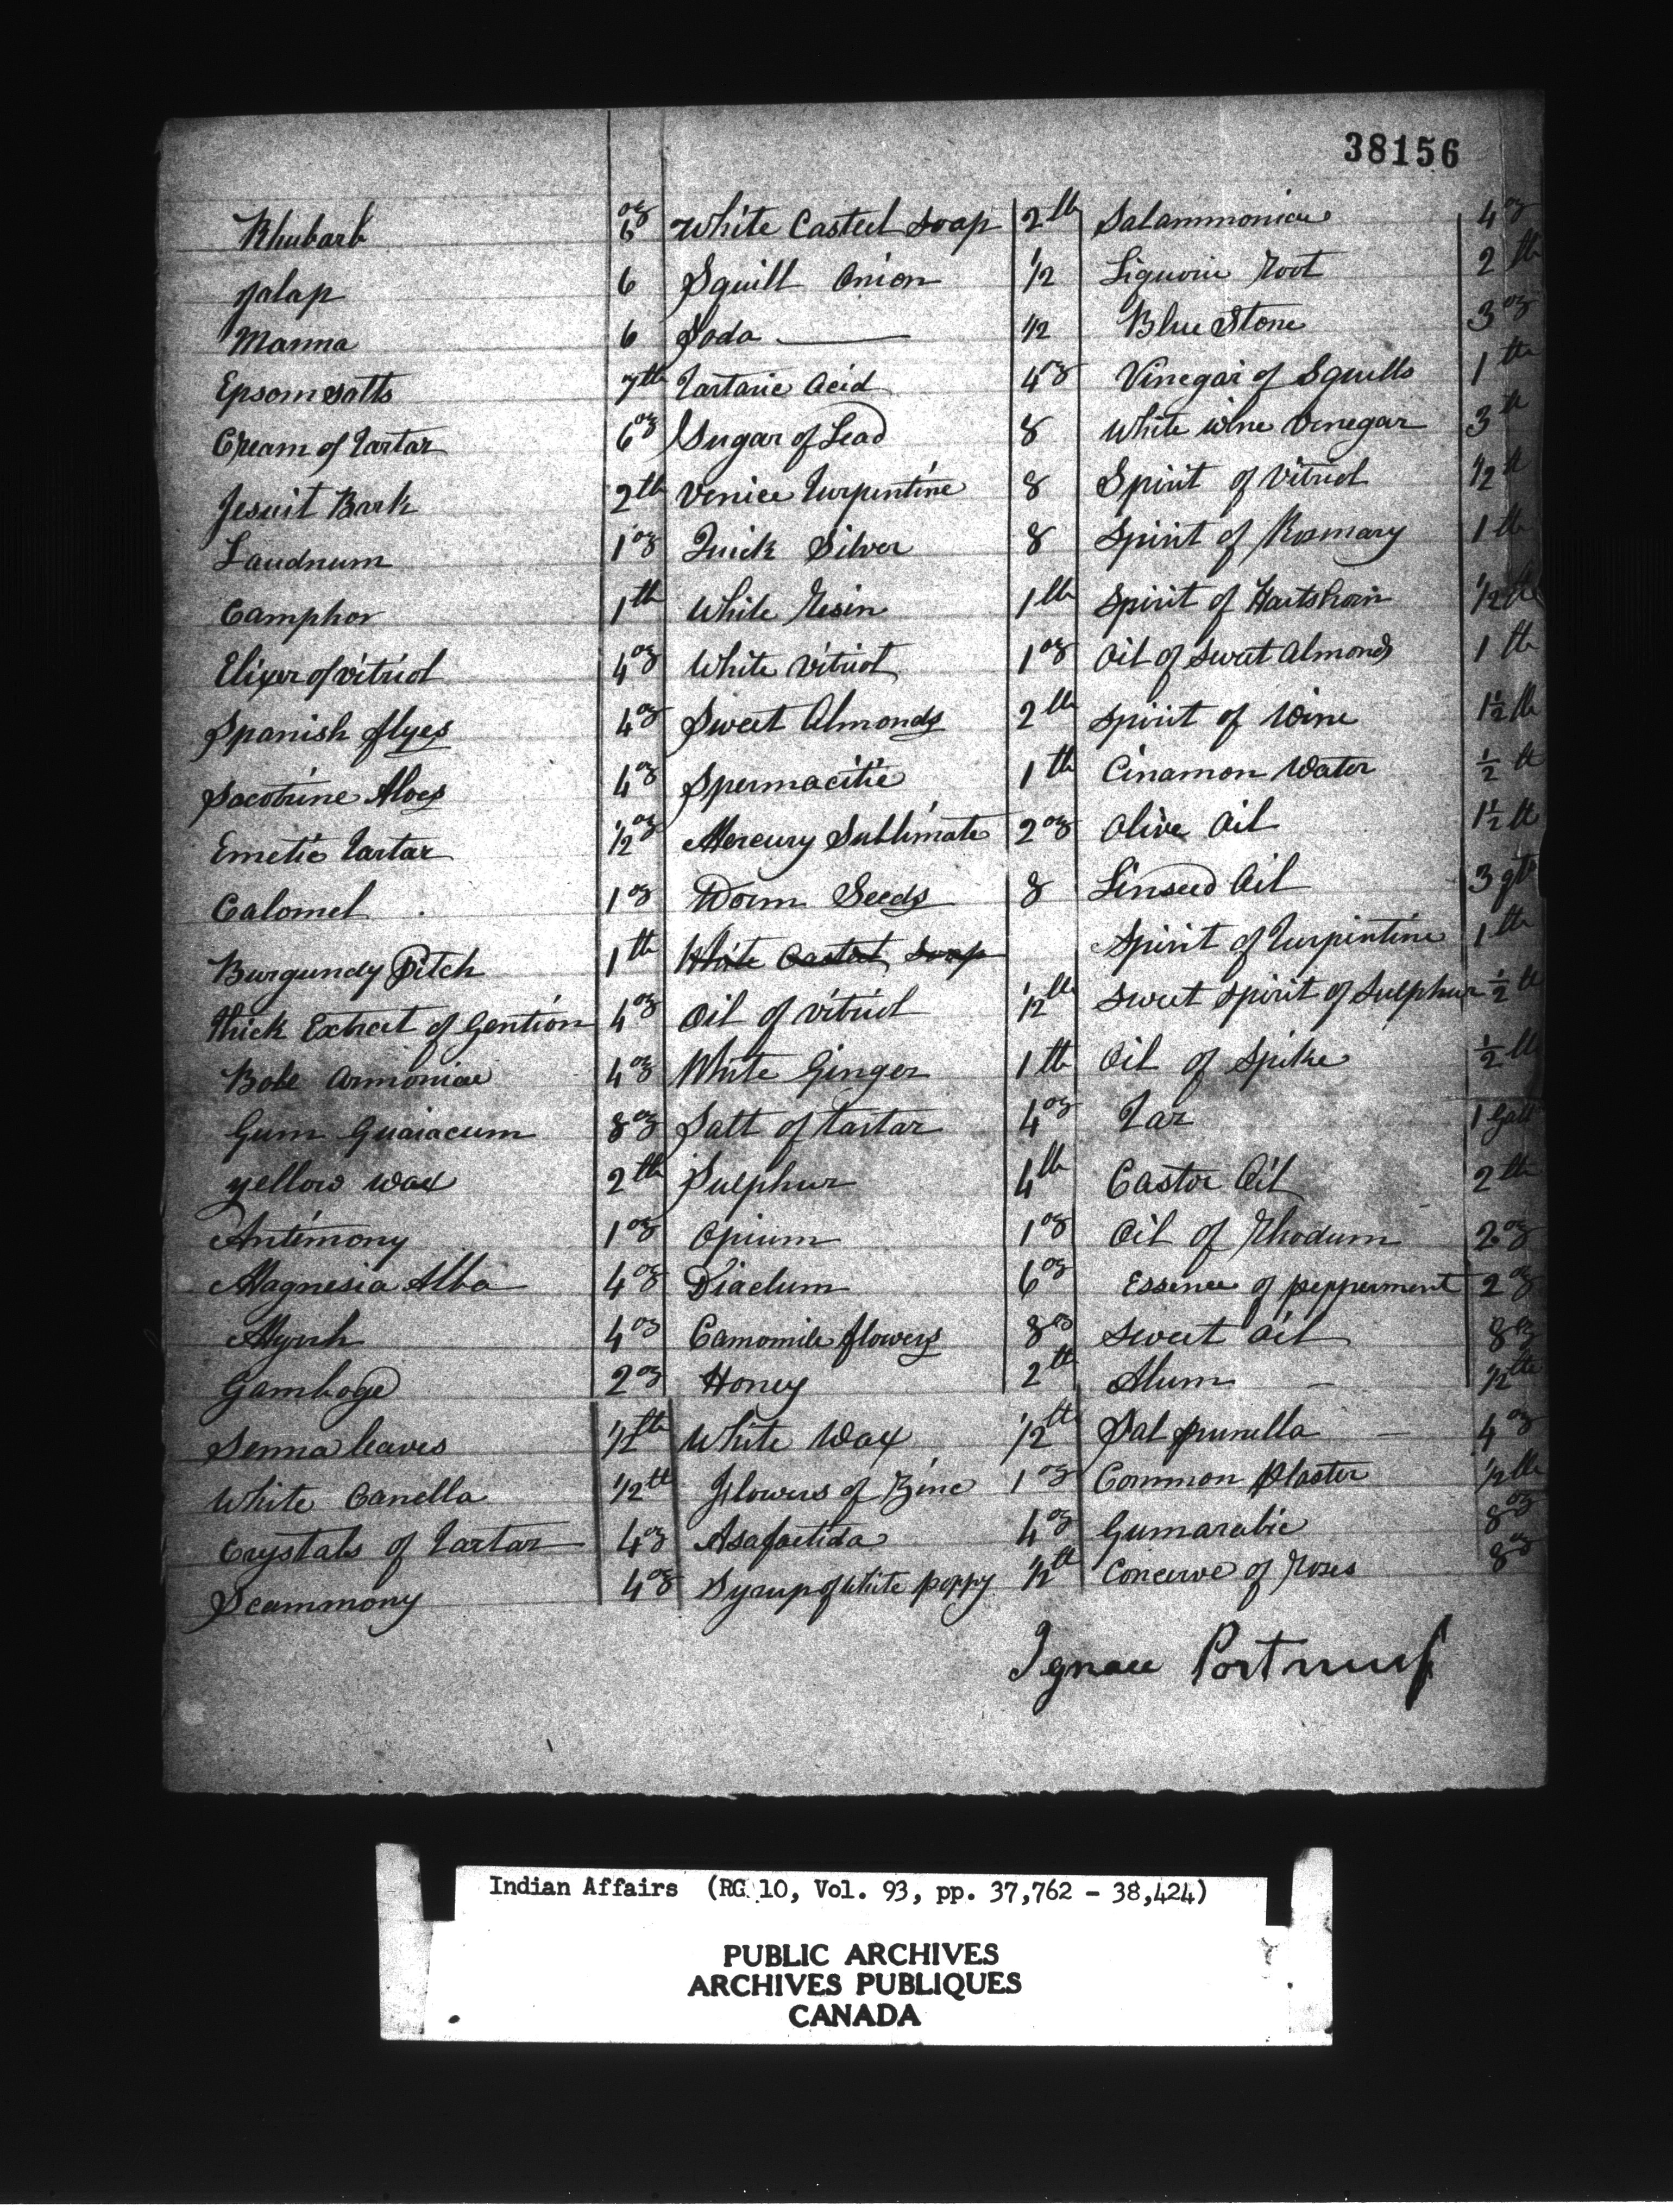 38156
Rhubarb 6 oz White Casteel Soap 2 lb Salammoniac 4 oz
Jalap 6 Squill Onion 1/2 Liquorie Root 2 lb
Manna 6 Soda — 1/2 Blue Stone 3 oz
Epsom salts 7 lb Tartaric Acid 4 oz Vinegar of Squills 1 lb
Cream of Tartar 6 oz Sugar of Lead 8 White wine Vinegar 3 lb
Jesuit Bark 2 lb Venice Turpentine 8 Spirit of Vitriol 1/2 lb
Laudnum 1 oz Quick Silver 8 Spirit of Rosmary 1 lb
Camphor 1 lb White Resin 1 lb Spirit of Hartshorn 1/2 lb
Elixer of Vitriol 4 oz White Vitriol 1 oz Oil of Sweet Almonds 1 lb
Spanish flyes 4 oz Sweet Almonds 2 lb Spirit of Wine 1 1/2 lb
Socotrine Aloes 4 oz Spermacitie 1 lb Cinamon Water 1/2 lb
Emetic Tartar 1/2 oz Mercury Sublimate 2 oz Olive Oil 1 1/2 lb
Calomel 1 oz Worm Seeds 8 Linseed Oil 3 qts
Burgundy Pitch 1 lb White Casteel Soap Spirit of Turpintine 1 lb
Thick Extract of Gention 4 oz Oil of Vitriol 1/2 lb Sweet Spirit of Sulphur 1/2 lb
Bole Armoniac 4 oz White Ginger 1 lb Oil of Spike 1/2 lb
Gum Guaiacum 8 oz Salt of Tartar 4 oz Tar 1 Gall
yellow wax 2 lb Sulphur 4 lb Castor Oil 2 lb
Antimony 1 oz Opium 1 oz Oil of Rhodum 2 oz
Magnesia Alba 4 oz Diaclum 6 oz Essence of pepperment 2 oz
Myrrh 4 oz Camomile flowers 8 oz Sweet Oil 8 oz
Gamboge 2 oz Honey 2 lb Alum — 1/2 lb
Senna leaves 1/2 lb White Wax 1/2 lb Sal prunella — 4 oz
White Canella 1/2 lb Flowers of Zinc 1 oz Common Plaster 1/2 lb
Crystals of Tartar 4 oz Asafoetida 4 oz Gumarabic 8 oz
Scammony 4 oz Syrup of White poppy 1/2 lb Concerve of Roses 8 oz
Ignace Portneuf
Indian Affairs (RG 10, Vol. 93, pp. 37,762 - 38,424)
PUBLIC ARCHIVES
ARCHIVES PUBLIQUES
CANADA